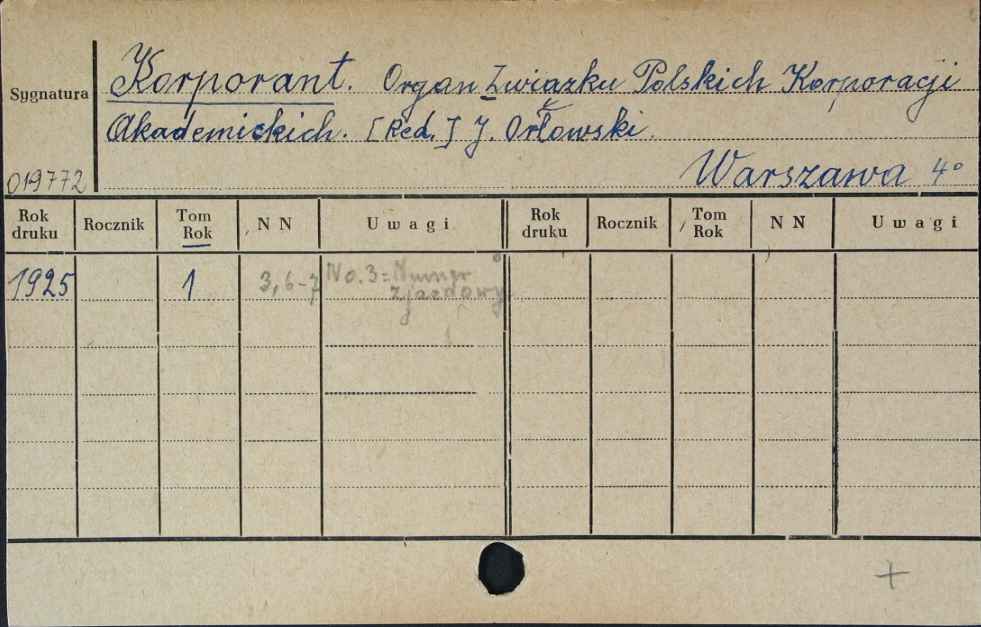 Korporant. Organ Związku Polskich Korporacji
Sygnatura
Akademickich. [Red.] J. Orłowski.
019772
Warszawa 4°
Rok druku Rocznik Tom Rok NN Uwagi Rok druku Rocznik Tom Rok NN Uwagi
1925 1 3, 6-7 No. 3 = Numer
zjazdowy.
+